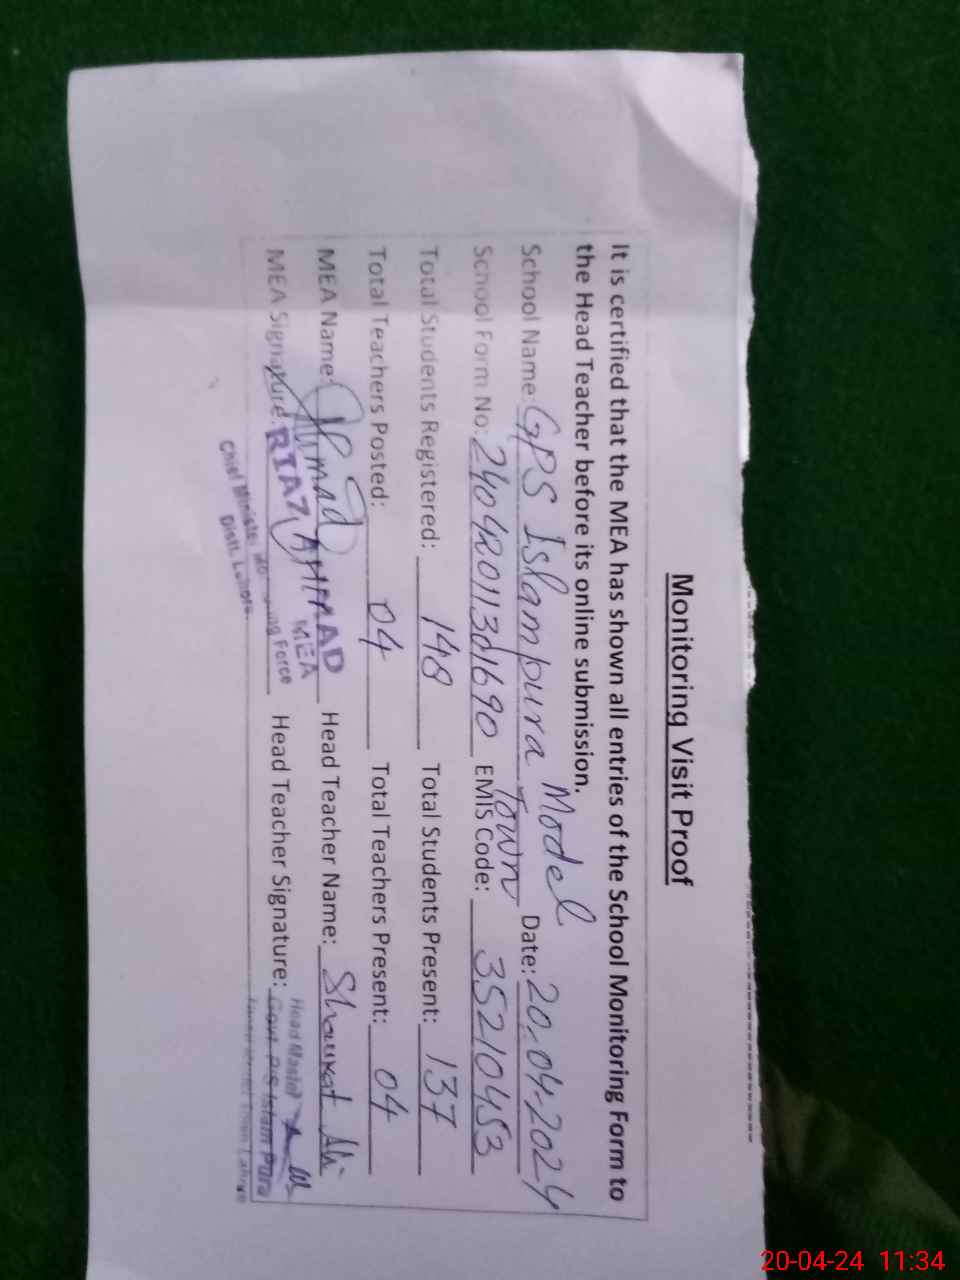 Monitoring Visit Proof
It is certified that the MEA has shown all entries of the School Monitoring Form to
the Head Teacher before its online submission.
School Name: GPS Islampura Model Town Date: 20-04-2024
School Form No: EMIS Code: 35210453
Total Students Registered: 148 Total Students Present: 137
Total Teachers Posted: 04 Total Teachers Present: 04
MEA Name: Head Teacher Name: Shaukat Ali
MEA Signature: Head Teacher Signature:
RIAZ AHMAD
MEA
Chief Minister Force
Distt. Lahore.
Head Master
Govt. P/S Islam Pura
Town Lahore
20-04-24 11:34